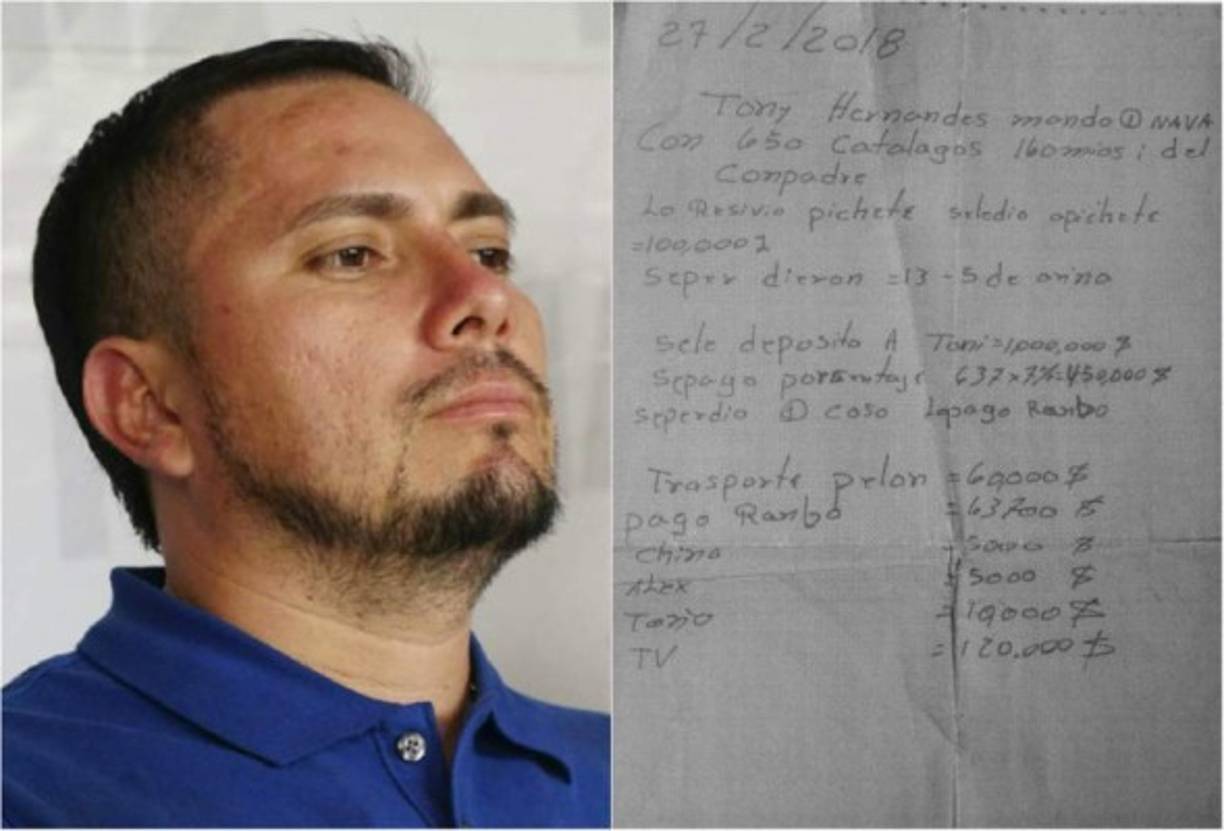 27/2/2018
Tony Hernandes mando ① NAVA
Con 650 Catalagos 160 mios i del
Conpadre
Lo Resivio pichete seledio apichete
=100,000$
Seper dieron =13 - 5 de
Sele deposito A Toni=1,000,000 $
Sepago 637x7%=450,000 $
seperdio ① coso Lopago Ranbo
Trasporte pelon =60,000 $
pago Ranbo =63700 $
chino =5000 $
ALEX =5000 $
=10,000 $
TV =120,000 $